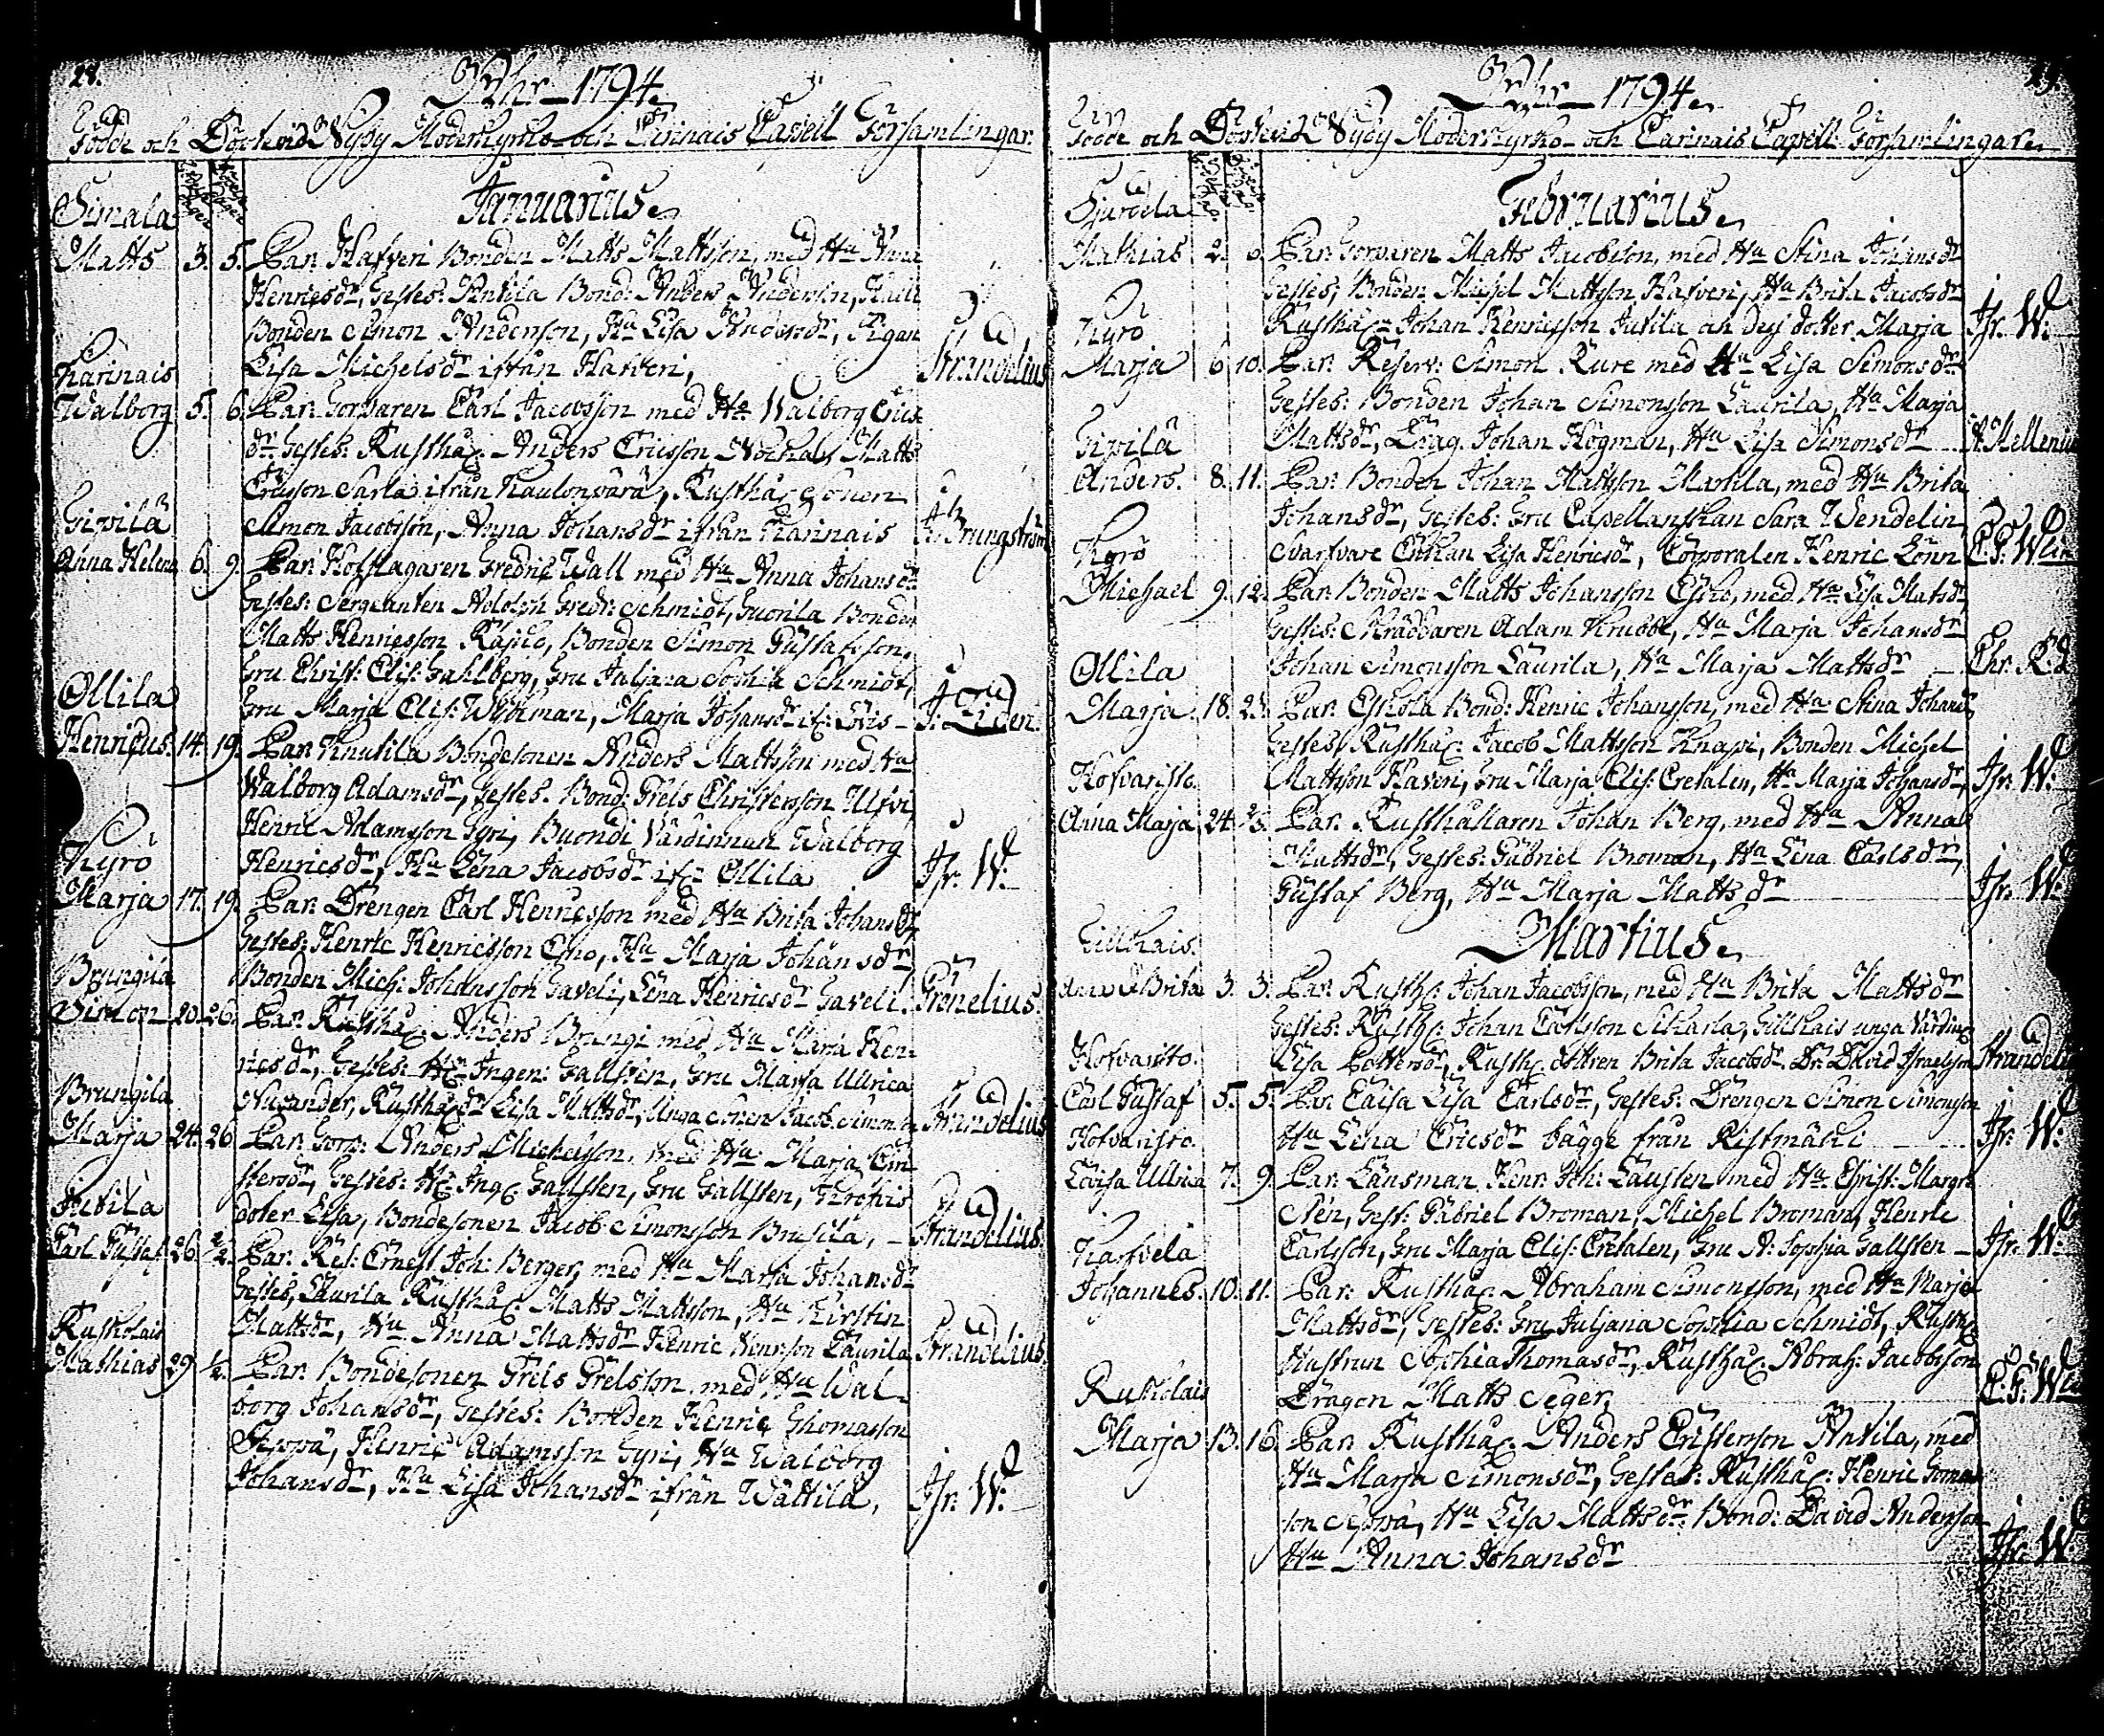 28.
Åhr 1794.
Födde och Döpte vid Nykyrcko Moderkyrko och Carinais Capell Församlingar.
Januarius.
Simala
Matts 3. 5. Par: Hafveri Bonden Matts Mattsson, med Hu Anna
Henricsdr, Testes: Antila Bond: Anders Andersson,
Bonden Simon Andersson, Hu Lisa Andersdr, Pigan
Lisa Michelsdr ifrån Hafveri, Strandelius
Karinais
Walborg 5. 6. Par: Torparen Carl Jacobsson med Hu Walborg Erics
dr Testes: Rusthåll: Anders Ericsson Matts
Ericsson Sarla ifrån Kaulonperä, Rusthåll: Sonen
Simon Jacobsson, Anna Johansdr ifrån Karinais
Tixilä
Anna Helena 6. 9. Par: Hofslagaren Fredric Wall med Hu Anna Johansdr
Testes: Sergeanten Adolph Fredr: Schmidt, Bonden
Matts Henricsson Bonden Simon Gustafsson,
Fru Christ: Elis: Gahlberg, Fru Juljana Sophia Schmidt,
Fru Marja Elis: Widman, Marja Johansdr J: Liden.
Ollila
Henricus. 14. 19. Par: Knutila Bondesonen Anders Mattsson med Hu
Walborg Adamsdr, Testes. Bond: Grels Christersson Ulfvi,
Henric Adamsson Gyri, Buondi Värdinnan Walborg
Henricsdr, Hu Lena Jacobsdr if: Ollila Jsr. W:
Kyrö
Marja 17. 19. Par: Drengen Carl Henricsson med Hu Brita Johansdr,
Testes: Henric Henricsson Esko, Hu Marja Johansdr
Bonden Mich: Johansson Gaveli, Lena Henricsdr Gaveli. Grönelius.
Brungila
Simon 20. 26. Par: Rusthåll: Anders Brungi med Hu Maria Hen-
ricsdr, Testes: Hr Ingen: Gallsten, Fru Marja Ullrica
Nusander, Rusthåll dr Lisa Mattsdr, Unga Sonen Jacob Simonsson Strandelius
Brungila
Marja 24. 26. Par: Torp: Anders Michelsson, med Hu Marja Chri-
stersdr, Testes: Hr Ing: Gallsten, Fru Gallsten,
doter Lisa, Bondesonen Jacob Simonsson Brusila, Strandelius.
Jutila
Carl Gustaf 26. 2/2. Par: Res: Ernest Joh: Berger, med Hu Maria Johansdr
Testes, Laurila Rusthåll: Matts Mattsson, Hu Kirstin
Mattsdr, Hu Anna Mattsdr Henric Henrsson Laurila Strandelius.
Ruskolais
Mathias 29. 1/2. Par: Bondesonen Grels Grelsson, med Hu Wal-
borg Johansdr, Testes: Bonden Henric Thomasson
Seppä, Henric Adamsson Gyri, Hu Walborg
Johansdr, Hu Lisa Johansdr ifrån Wättilä, Jsr. W:
Åhr 1794.
Födde och Döpte vid Nykyrcko Moderkyrko och Carinais Capell Församlingar.
Februarius.
Sjurdela
Mathias 2. Par: Torparen Matts Jacobsson, med Hu Stina Johansdr
Testes, Bonden Michel Mattsson Hafveri, Hu Brita Jacobsdr
Rusthålln Johan Henricsson Jutila och dess dotter Marja Jsr. W:
Kyrö
Marja 6. 10. Par: Reserv: Simon Kure med Hu Lisa Simonsdr
Testes: Bonden Johan Simonsson Laurila, Hu Marja
Mattsdr, Drag. Johan Högman, Hu Lisa Simonsdr A: Mellenius
Tixilä
Anders. 8. 11. Par: Bonden Johan Mattsson Markila, med Hu Brita
Johansdr, Testes: Fru Capellanskan Sara Wendelin
Svarfvare Enkan Lisa Henricsdr, Corporalen Henric Lönn
Kyrö
Michael 9. 12. Par: Bonden Matts Johansson Esko, med Hu Lisa Matsdr,
Testes: Skräddaren Adam Krubbe, Hu Marja Johansdr
Johan Simonsson Laurila, Hu Marja Mattsdr
Ollila
Marja 18. 23. Par: Eskola Bond: Henric Johansson, med Hu Stina Johansdr
Testes, Rusthåll: Jacob Mattsson Knapi, Bonden Michel
Mattsson Haveri, Fru Marja Elis: Cretalen, Hu Marja Johansdr, Jsr. W:
Hofvaristo
Anna Marja 24. 25. Par: Rusthållaren Johan Berg, med Hu Anna
Mattsdr, Testes: Gabriel Broman, Hu Lena Carlsdr,
Gustaf Berg, Hu Marja Mattsdr Jsr. W:
Martius.
Tillkais.
Anna Brita 3. 3. Par: Rusth: Johan Jacobsson, med Hu Brita Mattsdr
Testes: Rusth: Johan Carlsson Sikarla, Tillkais unga Värdin:
Lisa Rusth: Brita Jacobsdr. Dr: David Israelsson Strandelius
Hofvaristo.
Carl Gustaf 5. 5. Par: Caisa Lisa Carlsdr, Testes: Drengen Simon Simonsson
Hu Lena Ericsdr bägge från Ristmäki Jsr. W:
Hofvaristo.
Lovisa Ullrica 7. 9. Par: Länsman Henr: Joh: Lausten med Hu Christ: Margr:
Alén, Test: Gabriel Broman, Michel Broman, Henric
Carlsson, Fru Marja Elis: Cretalen, Fru A: Sophia Gallsten Jsr. W:
Karfvela
Johannes. 10. 11. Par: Rusthåll: Abraham Simonsson, med Hu Marja
Mattsdr, Testes: Fru Juljana Sophia Schmidt, Rusth:
Hustrun Sophia Thomasdr, Rusthåll: Abrah: Jacobsson
Dragon Matts Seger,
Ruskolais
Marja 13. 16. Par: Rusthåll: Anders Christersson Antila, med
Hu Marja Simonsdr, Testes: Rusthåll: Henric Tomas-
son Seppä, Hu Lisa Mattsdr. Bond: David Andersson
Hu Anna Johansdr Jsr. W: